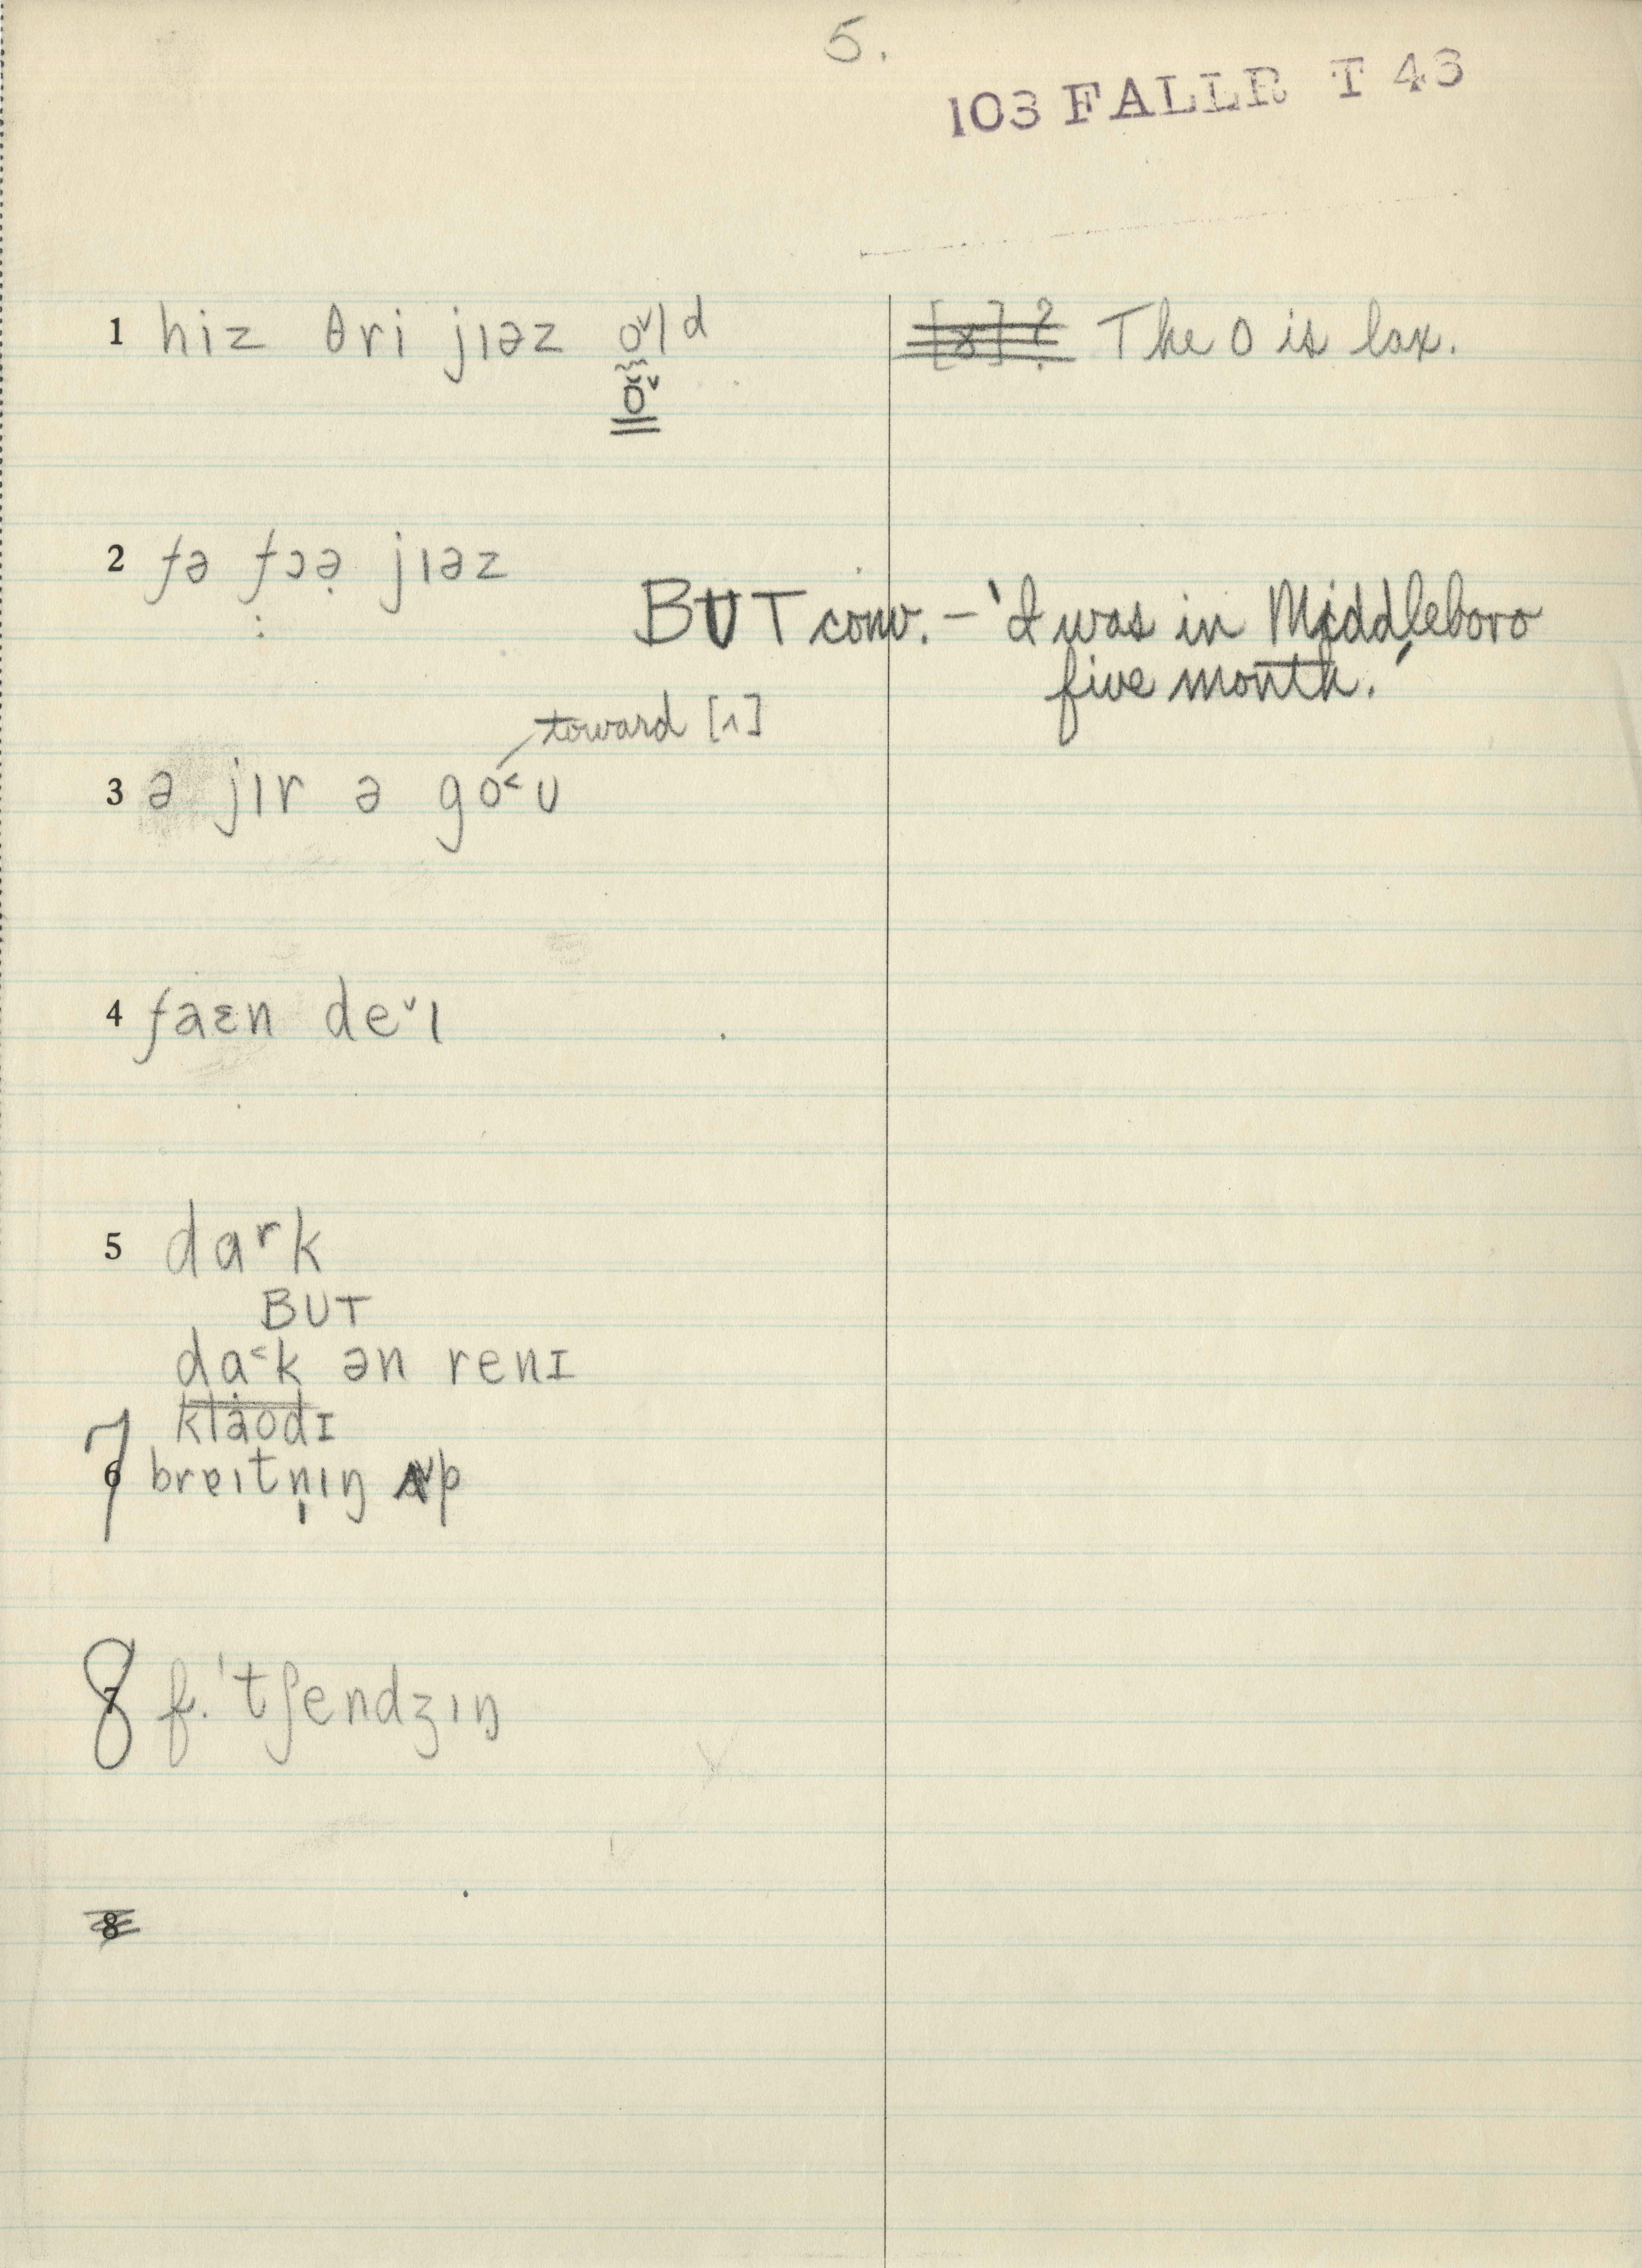 5.
103 FALLR T 43
1 hiz θri jɪəz o˅ld The o is lax.
o˅
2 fə fɔə̣ jɪəz
BUT conv. – 'I was in Middleboro
five month.'
toward [ʌ]
3 ə jɪr ə go˂ʊ
4 faɛn de˅ɪ
5 dɑʳk
BUT
da˂k ən renɪ
klaodɪ
7 breɪtn̩ɪŋ ʌ˅p
8 f. 'tʃendʒɪŋ
8